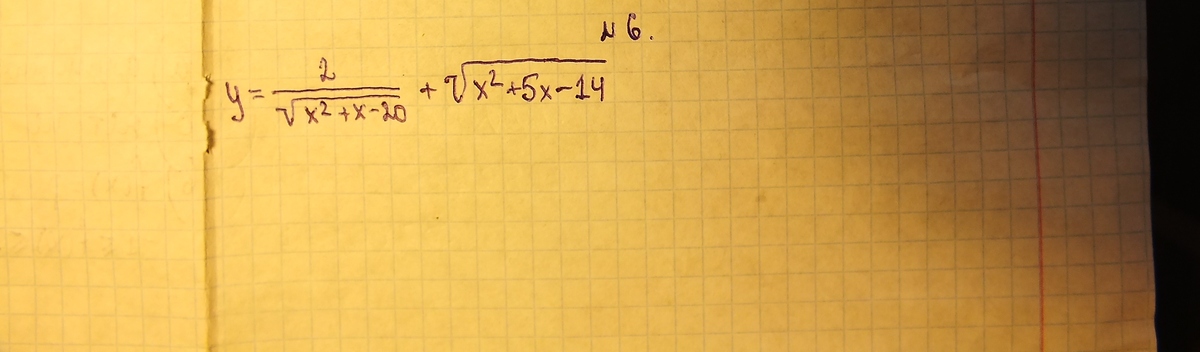 № 6.
y = 2/√(x²+x-20) + √(x²+5x-14)